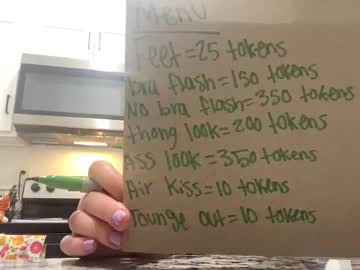 Menu
Feet = 25 tokens
bra flash = 150 tokens
No bra flash = 350 tokens
thong look = 200 tokens
Ass look = 350 tokens
Air kiss = 10 tokens
Tounge out = 10 tokens